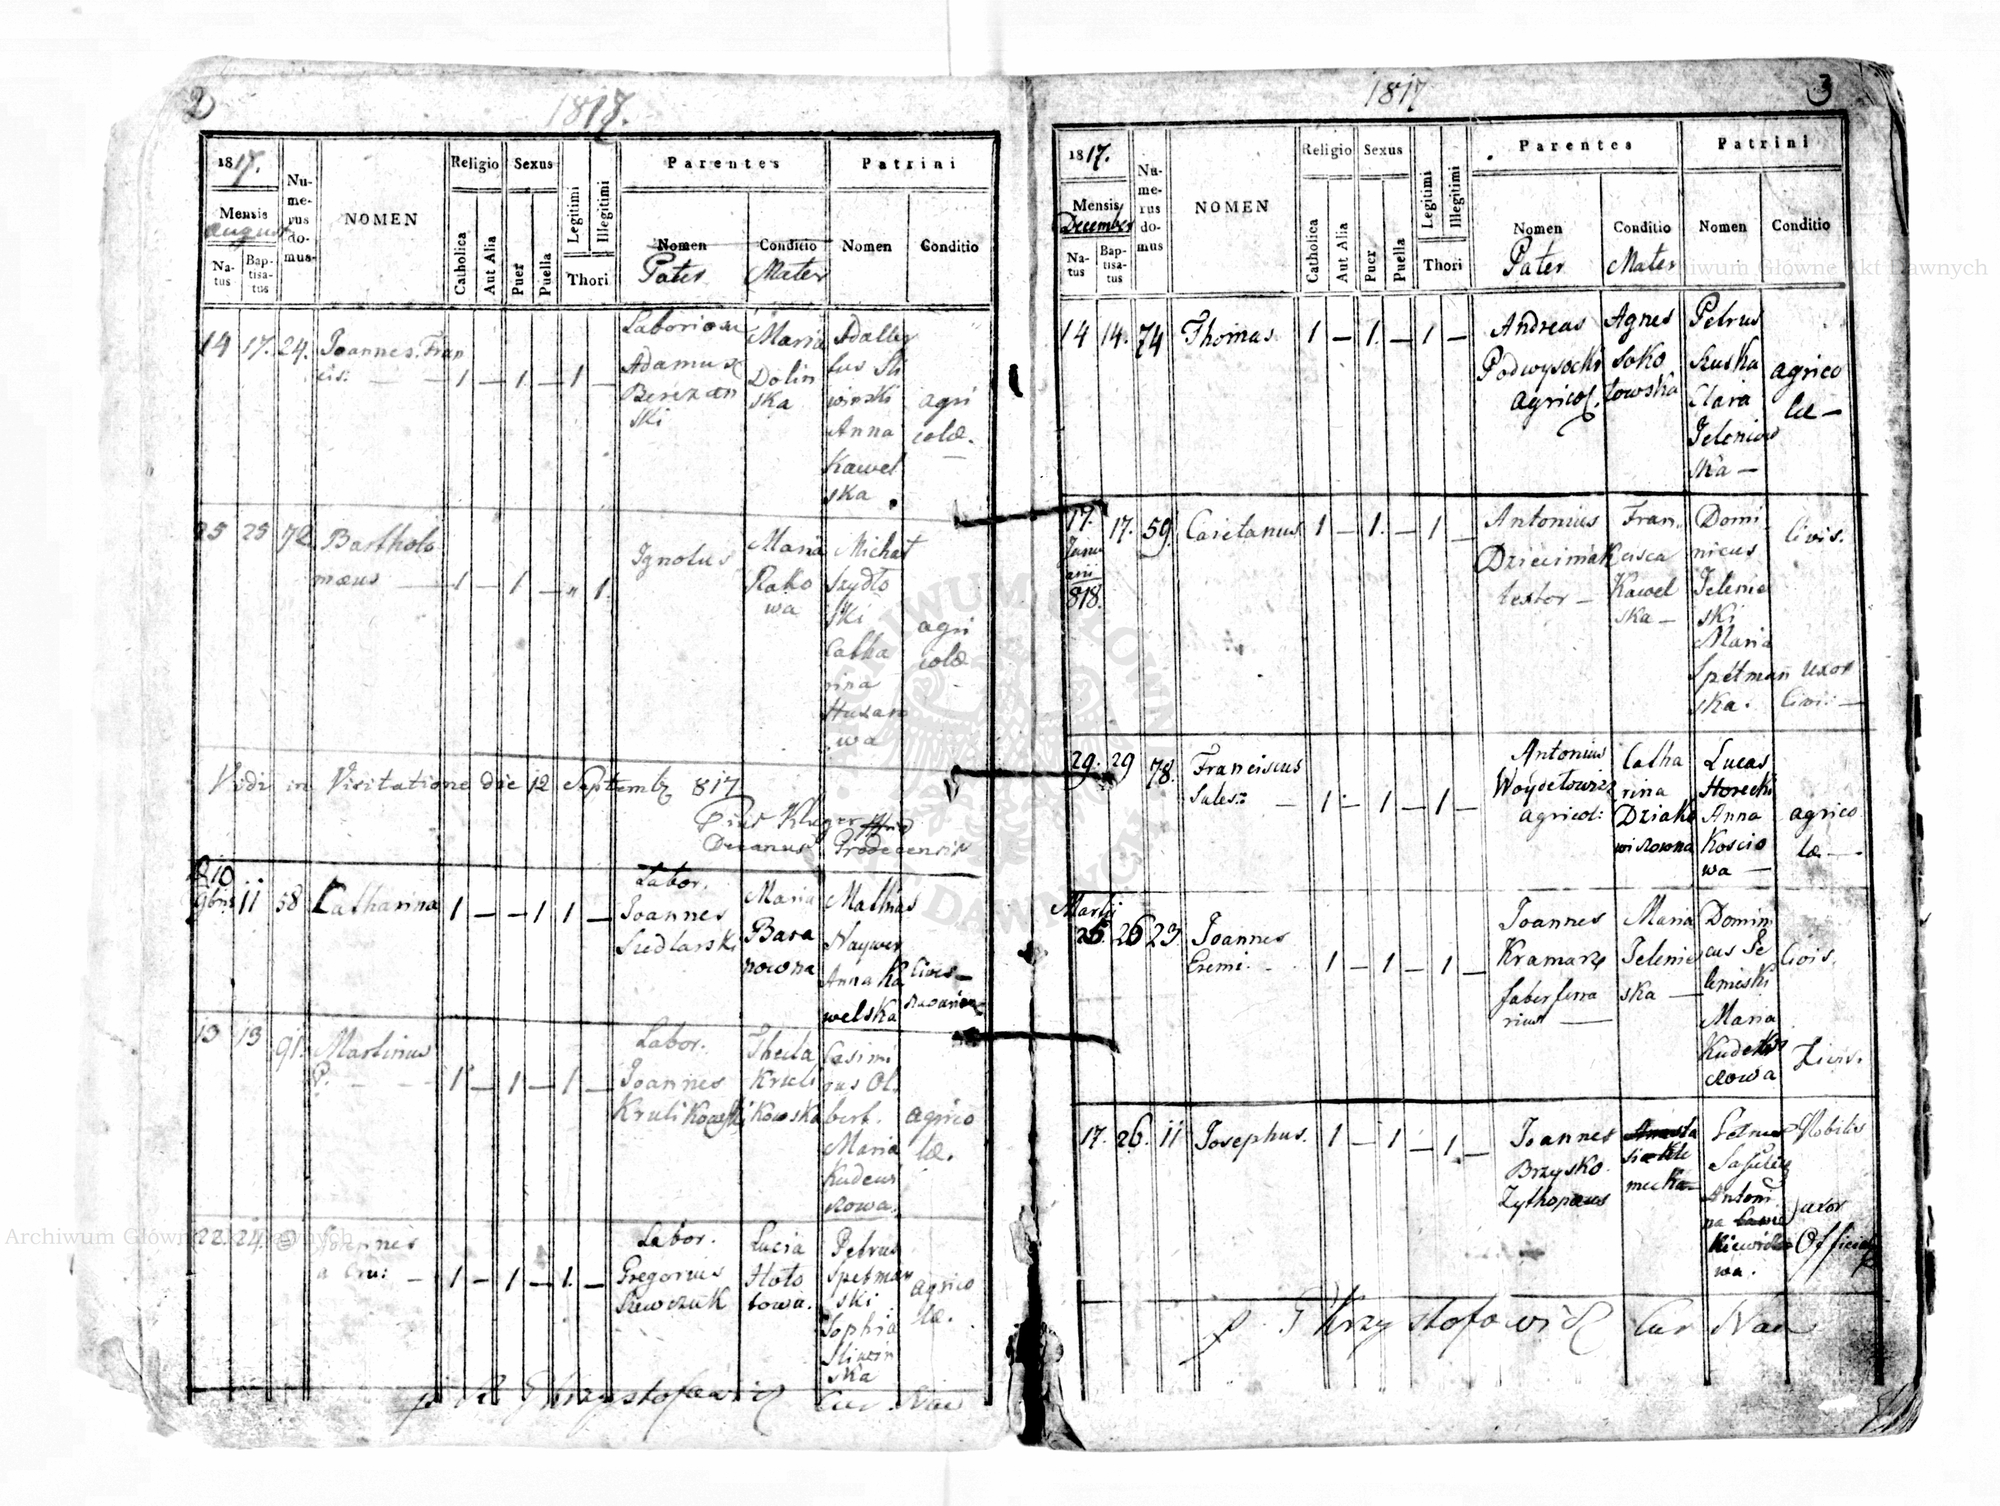 2
1817.
1817.
Mensis
August
Na-
tus
Bap-
tisa-
tus
Nu-
me-
rus
do-
mus
NOMEN
Religio
Catholica
Aut Alia
Sexus
Puer
Puella
Legitimi
Illegitimi
Thori
Parentes
Nomen
Pater
Conditio
Mater
Patrini
Nomen
Conditio
14 17. 24. Joannes. Fran
cis: — — 1 — 1 — 1 —
Adamus
Berezan
ski
Maria
Dolin
ska
Adalber
tus Sli
winski
Anna
Kawel
ska
agri
colæ.
25 25 72 Bartholo
mæus — 1 — 1 — „ 1.
Ignotus
Maria
Rako
wa
Michał
Szydło
ski
Catha
rina
Huzaro
wa
agri
colæ
Vidi in Visitatione die 12 Septembr 817
Decanus
10
9bris 11 58 Catharina 1 — — 1 1 —
Labor.
Joannes
Siedlarski
Maria
Bara
nowna
Mathias
Naywer
Anna Ka
welska
Cives —
13 13 91. Martinus
P. — — 1 — 1 — 1 —
Labor.
Joannes
Krulikowski
Thecla
Kruli
kowska
Casimi
rus Ol
bert.
Maria
Kudeus
kowa.
agrico
læ.
22. 24. Joannes
a Cru: — 1 — 1 — 1. —
Labor.
Gregorius
Szewczuk
Lucia
Hoto
towa.
Petrus
Spetman
ski
Sophia
Sliwin
ska
agrico
læ.
Krzysztofowicz Cur. Nae
3
1817
1817.
Mensis
December
Na-
tus
Bap-
tisa-
tus
Nu-
me-
rus
do-
mus
NOMEN
Religio
Catholica
Aut Alia
Sexus
Puer
Puella
Legitimi
Illegitimi
Thori
Parentes
Nomen
Pater
Conditio
Mater
Patrini
Nomen
Conditio
14 14. 74 Thomas 1 — 1. — 1 —
Andreas
Podwysocki
agricol.
Agnes
Soko
łowska
Petrus
Szuska
Clara
Jeleniow
ska —
agrico
læ —
17. 17. 59. Caietanus 1 — 1. — 1 —
Janu
arii
818.
Antonius
Dzieciniak
textor —
Fran
cisca
Kawel
ska —
Domi
nicus
Jelenie
ski
Maria
Spetmań
ska.
Civis.
uxor
Civi: —
29. 29 78. Franciscus
Sales: — 1 — 1 — 1 —
Antonius
Woyciowicz
agricol:
Catha
rina
Dziako
wiczowna
Lucas
Horecki
Anna
Koscio
wa —
agrico
læ —
Martii
26. 26 23. Joannes
Eremi. — 1 — 1 — 1 —
Joannes
Kramarz
faber ferra
rius —
Maria
Jelenie
ska —
Domini
cus Je
lenieski
Maria
Kudeus
kowa
Civis.
Civis.
17. 26. 11 Josephus. 1 — 1 — 1 —
Joannes
Brzysko
Zythopæus
Nobilis
uxor
Official
Krzysztofowicz Cur Nae
Archiwum Główne Akt Dawnych
Archiwum Główne Akt Dawnych
ARCHIWUM GŁÓWNE AKT DAWNYCH